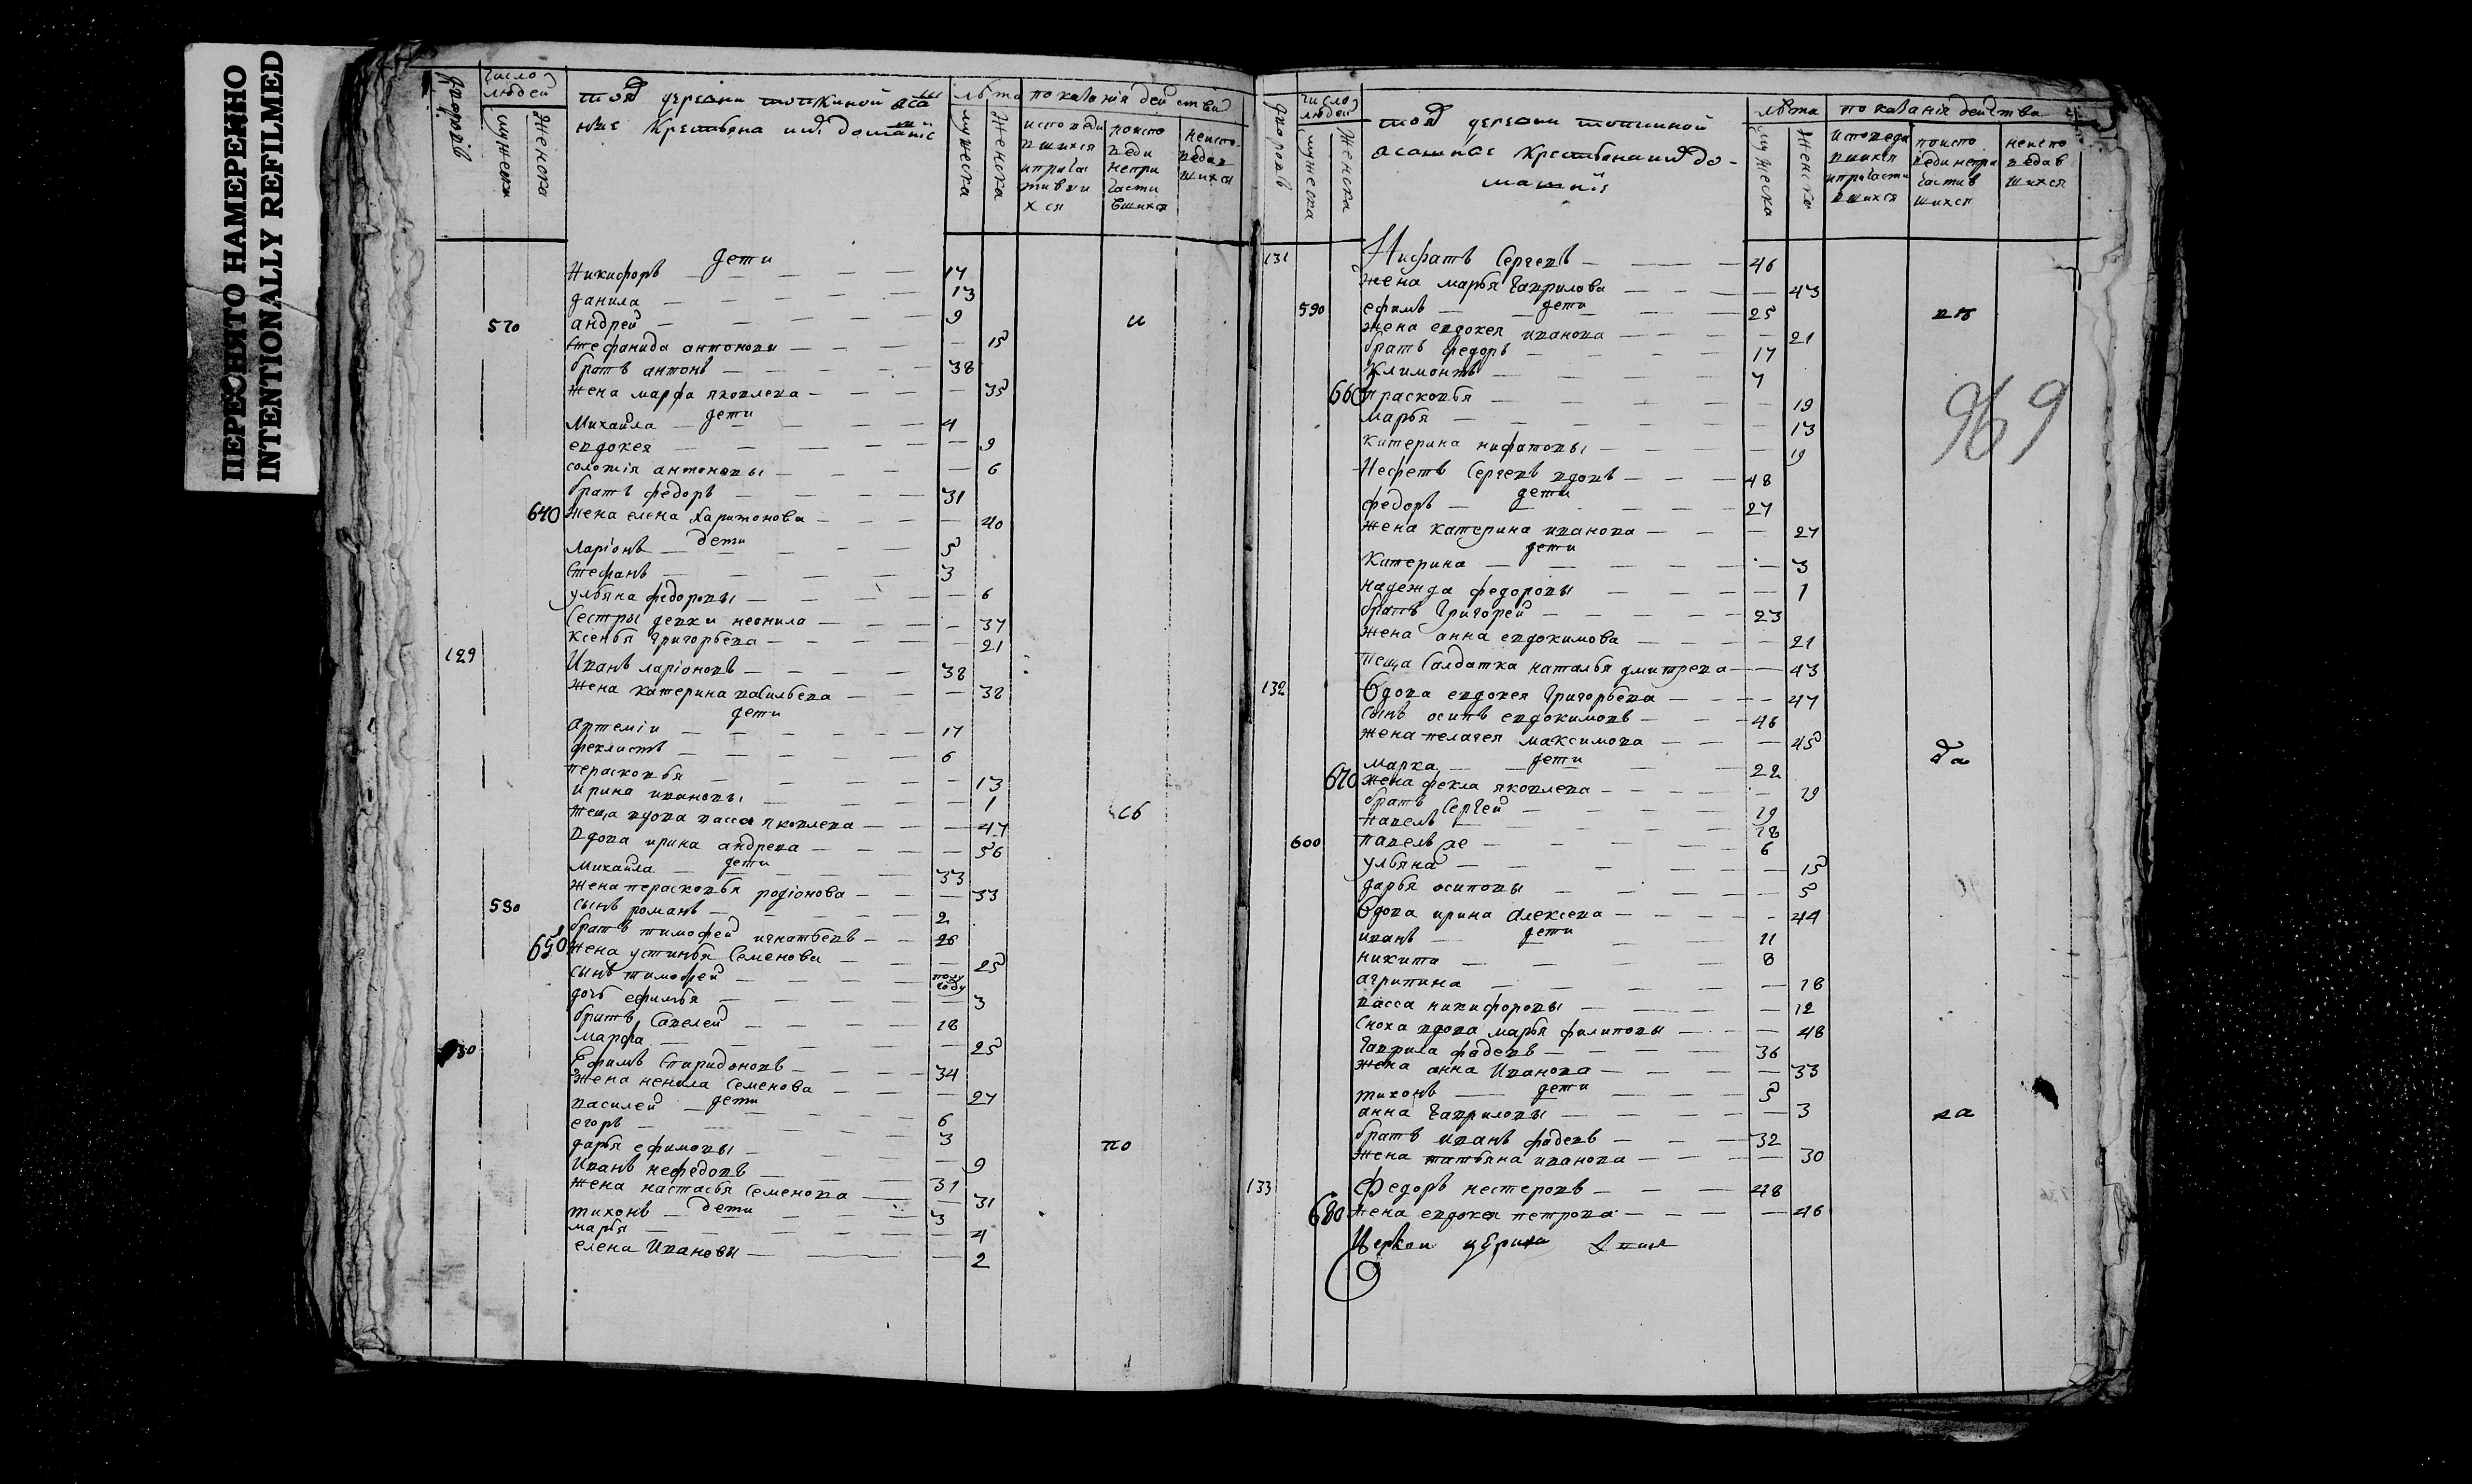 ПЕРЕСНЯТО НАМЕРЕННО
INTENTIONALLY REFILMED
дворовъ
число людей
мужеска
женска
той деревни
крестьяна и их домашние
лѣта
мужеска
женска
показанія действа
исповедавшихся и причастившихся
по исповеди непричастившихся
неисповедавшихся
дети
Никифоръ 17
данила 13
570 андрей 9
стефанида антонова 15
братъ антонъ 38
жена марфа яковлева 35
дети
Михайла 4
евдокея 9
соломія антоновы 6
братъ федоръ 31
640 жена елена Харитонова 40
дети
ларіонъ 5
стефанъ 3
ульяна федоровы 6
сестры девки неонила 37
ксенья григорьева 21
129 Иванъ ларіоновъ 38
жена катерина васильева 38
дети
Артеміи 17
феклистъ 6
перасковья 13
ирина ивановы 1
теща вдова васса яковлева 47
вдова ирина андрева 56
дети
михайла 33
жена перасковья родіонова 33
580 сынъ романъ 2
братъ тимофей игнатьевъ 26
650 жена устинья Семенова 25
сынъ тимофей полугоду
дочь ефимья 3
братъ Савелей 18
марфа 25
130 Ефимъ Спиридоновъ 34
жена ненила Семенова 27
дети
василей 6
егоръ 3
дарья ефимовы 9
Иванъ нефедовъ 31
жена настасья Семенова 31
дети
тихонъ 3
марья 4
елена Ивановы 2
дворовъ
число людей
мужеска
женска
той деревни
крестьяна и их домашнія
лѣта
мужеска
женска
показанія действа
исповедавшихся и причастившихся
по исповеди непричастившихся
неисповедавшихся
969
131 Нифатъ Сергеевъ 46
жена марья гаврилова 43
дети
590 ефимъ 25
жена евдокея иванова 21
братъ федоръ 17
климонтъ 7
660 прасковья 19
марья 13
катерина нифатовы 19
Нефетъ Сергеевъ вдовъ 48
дети
федоръ 27
жена катерина иванова 27
дети
катерина 3
надежда федоровы 1
братъ григорей 23
жена анна евдокимова 21
теща салдатка наталья дмитрева 43
132 вдова евдокея григорьева 47
сынъ осипъ евдокимовъ 46
жена пелагея максимова 45
дети
марка 22
670 жена фекла яковлева 19
братъ Сергей 19
павелъ 18
600 павелъ же 6
ульяна 15
дарья осиповы 5
вдова ирина алексева 44
дети
иванъ 11
никита 8
агрипина 18
васса никифоровы 12
сноха вдова марья филиповы 48
гаврила фадевъ 36
жена анна Иванова 33
дети
тихонъ 5
анна гавриловы 3
братъ иванъ фадевъ 32
жена татьяна иванова 30
133 Федоръ нестеровъ 48
680 жена евдокея петрова 46
Церкви